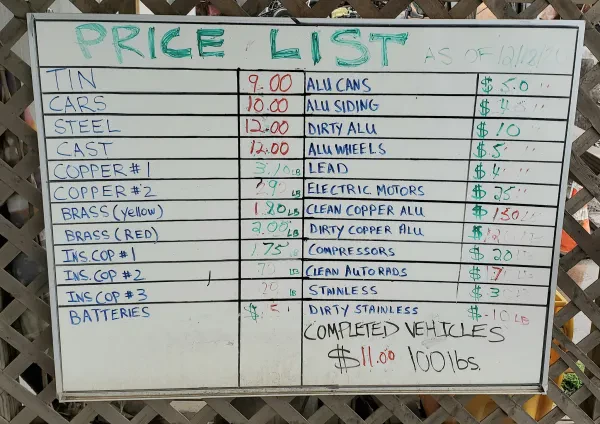 PRICE LIST AS OF 12/12/
TIN 9.00
CARS 10.00
STEEL 12.00
CAST 12.00
COPPER #1 LB
COPPER #2 LB
BRASS (yellow) 1.80 LB
BRASS (RED) 2.00 LB
INS. COP #1 1.75 LB
INS. COP #2 LB
INS. COP #3 LB
BATTERIES $
ALU CANS $ .50 "
ALU SIDING $
DIRTY ALU $ 10 "
ALU WHEELS $
LEAD $
ELECTRIC MOTORS $ 25 "
CLEAN COPPER ALU $
DIRTY COPPER ALU $
COMPRESSORS $ 20 "
CLEAN AUTO RADS $
STAINLESS $
DIRTY STAINLESS $ .10 LB
COMPLETED VEHICLES
$11.00 100 lbs.